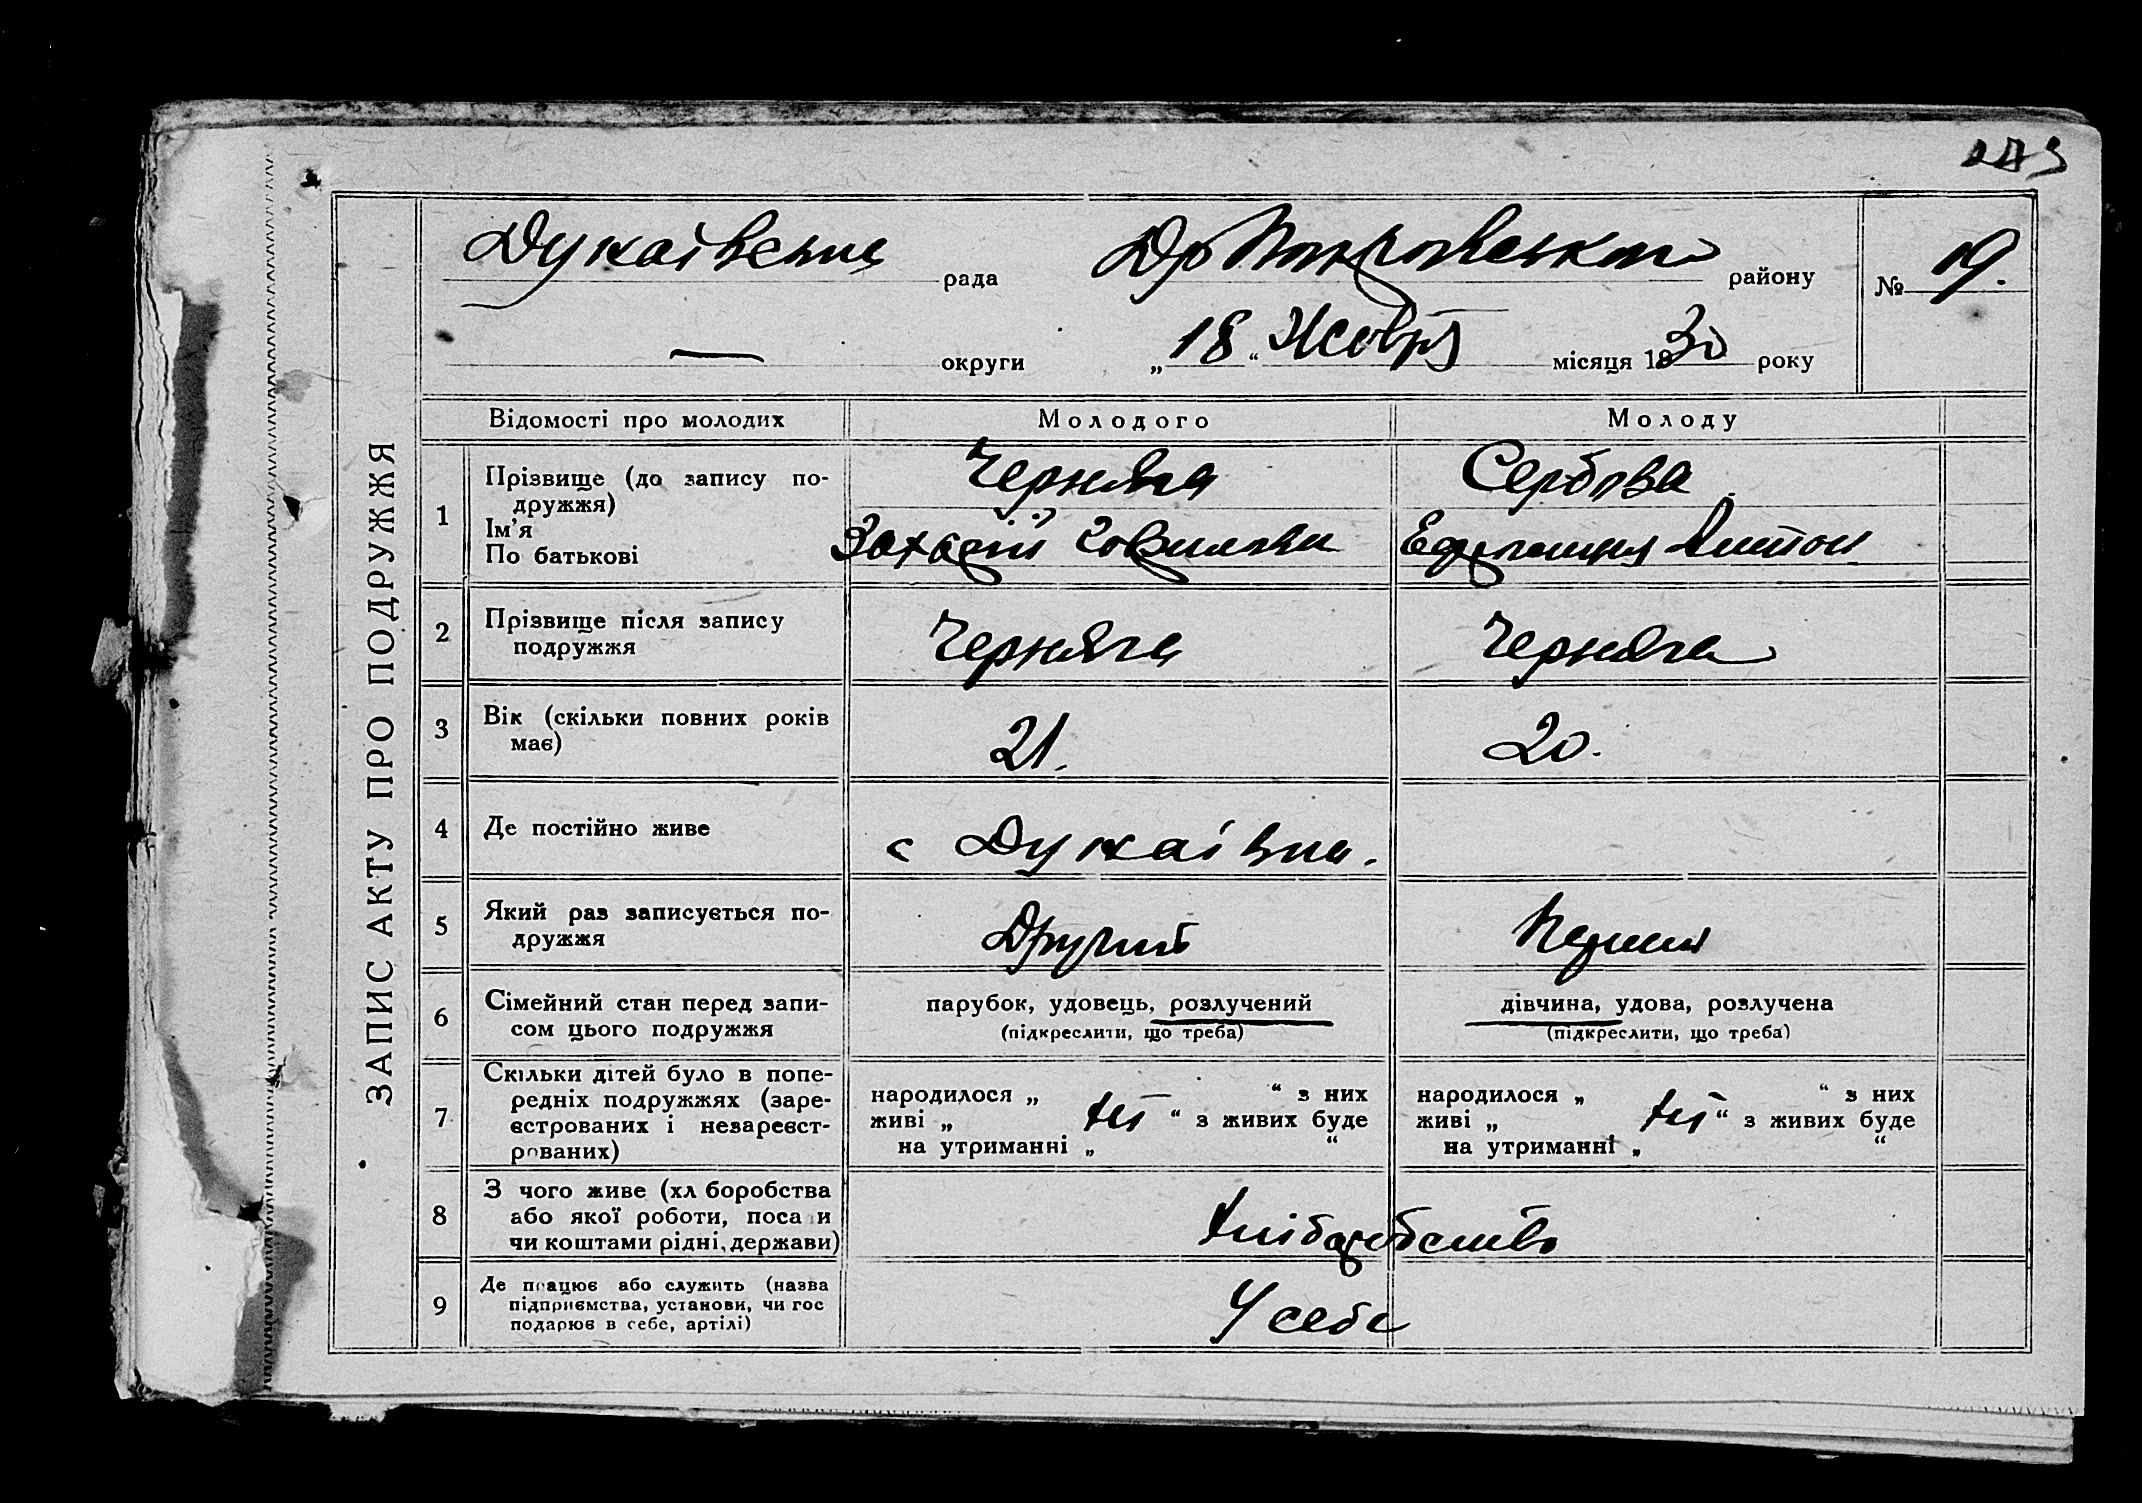 ЗАПИС АКТУ ПРО ПОДРУЖЖЯ
Дукаївська рада Др Покровського району № 19.
— округи „18“ Жовтр місяця 1930 року
Відомості про молодих Молодого Молоду
1 Прізвище (до запису по-
дружжя) Черняга Сербова
Ім’я
По батькові Захарій Говрилови Ефросинія Антон
2 Прізвище після запису
подружжя Черняга Черняга
3 Вік (скільки повних років
має) 21. 20.
4 Де постійно живе с Дукаївка.
5 Який раз записується по-
дружжя Другий Перший
6 Сімейний стан перед запи-
сом цього подружжя парубок, удовець, розлучений дівчина, удова, розлучена
(підкреслити, що треба) (підкреслити, що треба)
7 Скільки дітей було в попе-
редніх подружжях (заре-
єстрованих і незареєст-
рованих)
народилося „ “ з них народилося „ “ з них
живі „ “ з живих буде живі „ “ з живих буде
на утриманні „ “ на утриманні „ “
8 З чого живе (хл боробства
або якої роботи, поса и
чи коштами рідні, держави) Хліборобство
9 Де працює або служить (назва
підприємства, установи, чи гос
подарює в себе, артілі) У себе